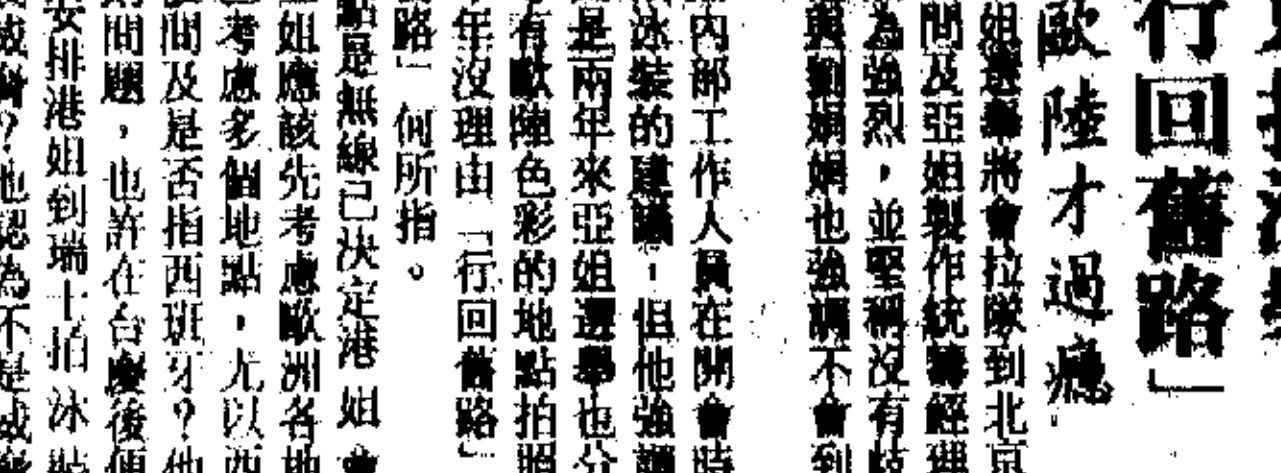 行回舊路」
歐陸才過癮
姐選舉將會拉隊到北京
間及亞姐製作統籌經理
為強烈，並堅稱沒有
與劉娟娟也強調不會到
內部工作人員在開會時
泳裝的建議，但他強調
是兩年來亞姐選舉也分
有歐陸色彩的地點拍照
年沒理由「行回舊路」
路」何所指。
點是無線已決定港姐會
姐應該先考慮歐洲各地
考慮多個地點，尤以西
間及是否指西班牙？他
間題，也許在台慶後便
安排港姐到瑞士拍泳裝
？他認為不是威